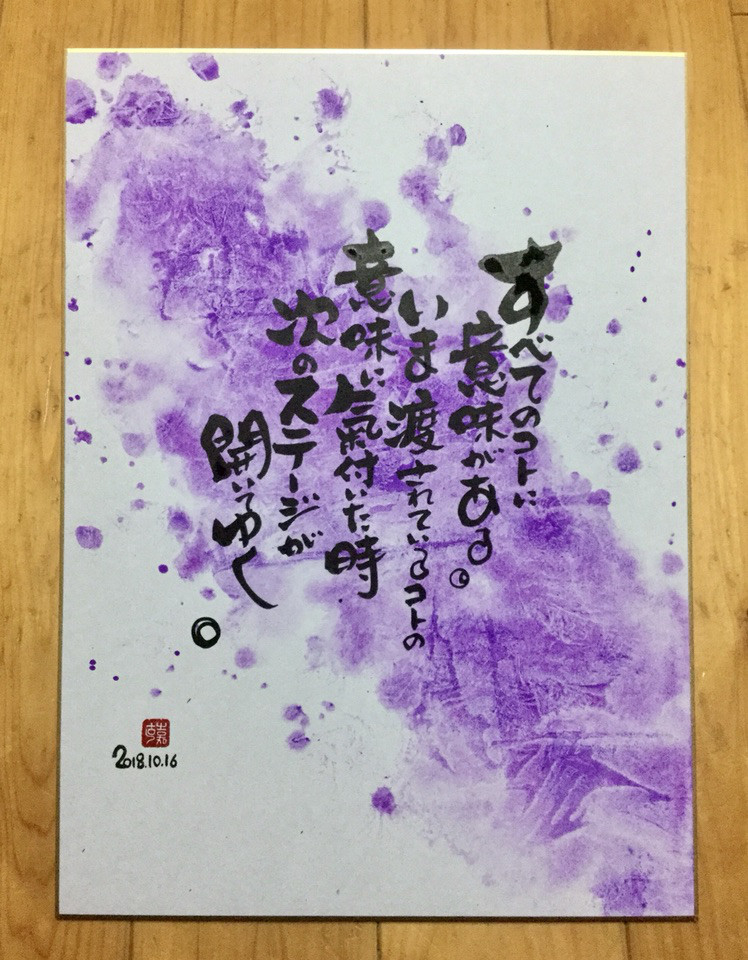 すべてのコトに
意味がある。
いま渡されているコトの
意味に氣付いた時
次のステージが
開いてゆく。
2018.10.16